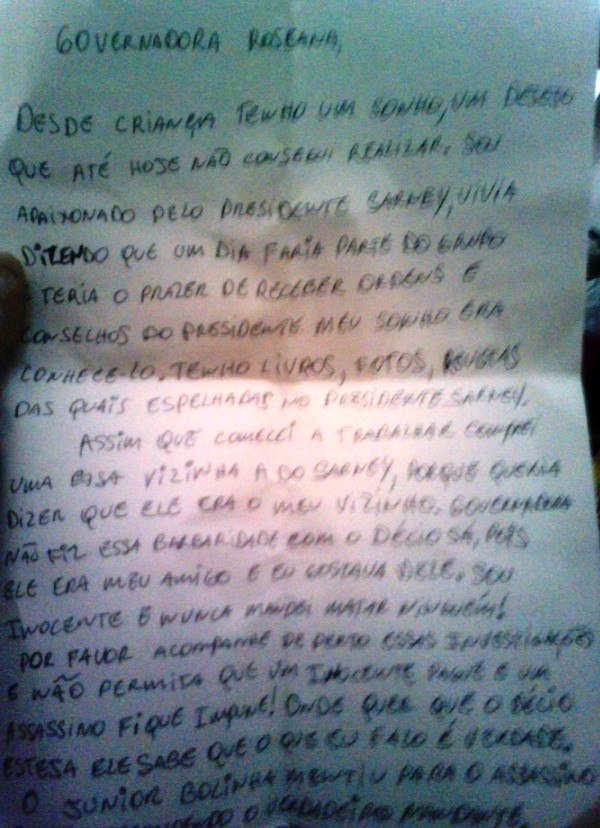 GOVERNADORA ROSEANA,
DESDE CRIANÇA TENHO UM SONHO, UM DESEJO
QUE ATÉ HOJE NÃO CONSEGUI REALIZAR. SOU
APAIXONADO PELO PRESIDENTE SARNEY, VIVIA
DIZENDO QUE UM DIA FARIA PARTE DO GRUPO
E TERIA O PRAZER DE RECEBER ORDENS E
CONSELHOS DO PRESIDENTE MEU SONHO ERA
CONHECE-LO. TENHO LIVROS, FOTOS,
DAS QUAIS ESPELHADAS NO PRESIDENTE SARNEY.
ASSIM QUE COMECEI A TRABALHAR COMPREI
UMA CASA VIZINHA A DO SARNEY, PORQUE QUERIA
DIZER QUE ELE ERA O MEU VIZINHO. GOVERNADORA
NÃO FIZ ESSA BARBARIDADE COM O DÉCIO SÁ, POIS
ELE ERA MEU AMIGO E EU GOSTAVA DELE. SOU
INOCENTE E NUNCA MANDEI MATAR NINGUÉM!
POR FAVOR ACOMPANHE DE PERTO ESSAS INVESTIGAÇÕES
E NÃO PERMITA QUE UM INOCENTE PAGUE E UM
ASSASSINO FIQUE IMPUNE! ONDE QUER QUE O DÉCIO
ESTEJA ELE SABE QUE O QUE EU FALO É VERDADE.
O JUNIOR BOLINHA MENTIU PARA O ASSASSINO
O VERDADEIRO MANDANTE.